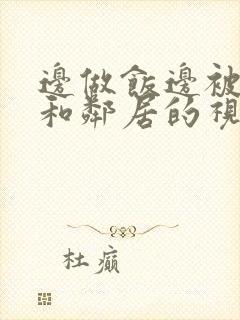 邊做飯邊被
和鄰居的視
杜癲